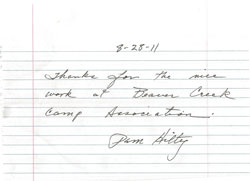 8-28-11
Thanks for the nice
work at Beaver Creek
Camp Association.
Pam Hilty